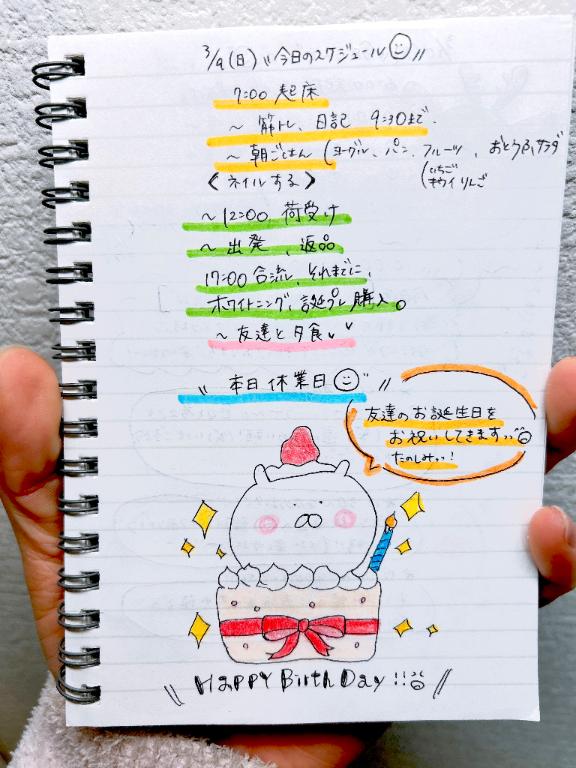 3/9(日) "今日のスケジュール"
7:00 起床
〜 筋トレ、日記 9:30まで.
〜 朝ごはん (ヨーグル、パン、フルーツ、おとうふ、サラダ
(いちご
キウイ りんご
《ネイルする》
〜12:00 荷受け
〜 出発、返品
17:00 合流、それまでに、
ホワイトニング、誕プレ購入。
〜 友達と夕食
" 本日休業日 "
友達のお誕生日を
お祝いしてきます
たのしみぃ!
HAPPY BirthDay !!